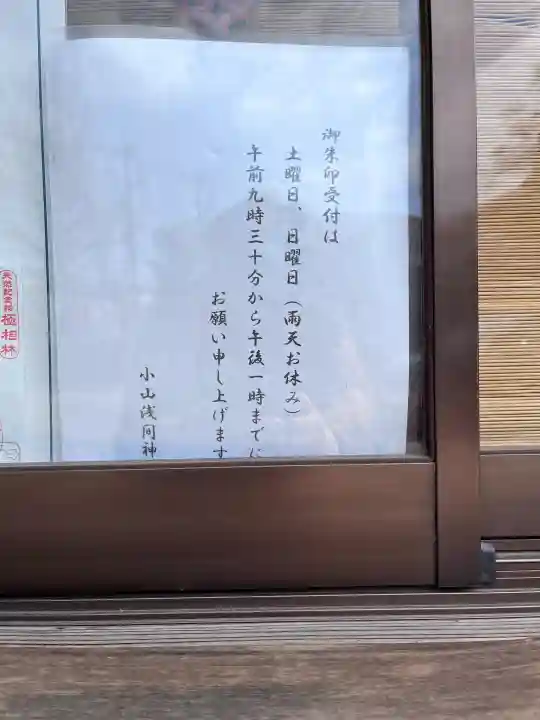 御朱印受付は
土曜日、日曜日（雨天お休み）
午前九時三十分から午後一時までに
お願い申し上げます
小山浅间神
天然記念物
極相林